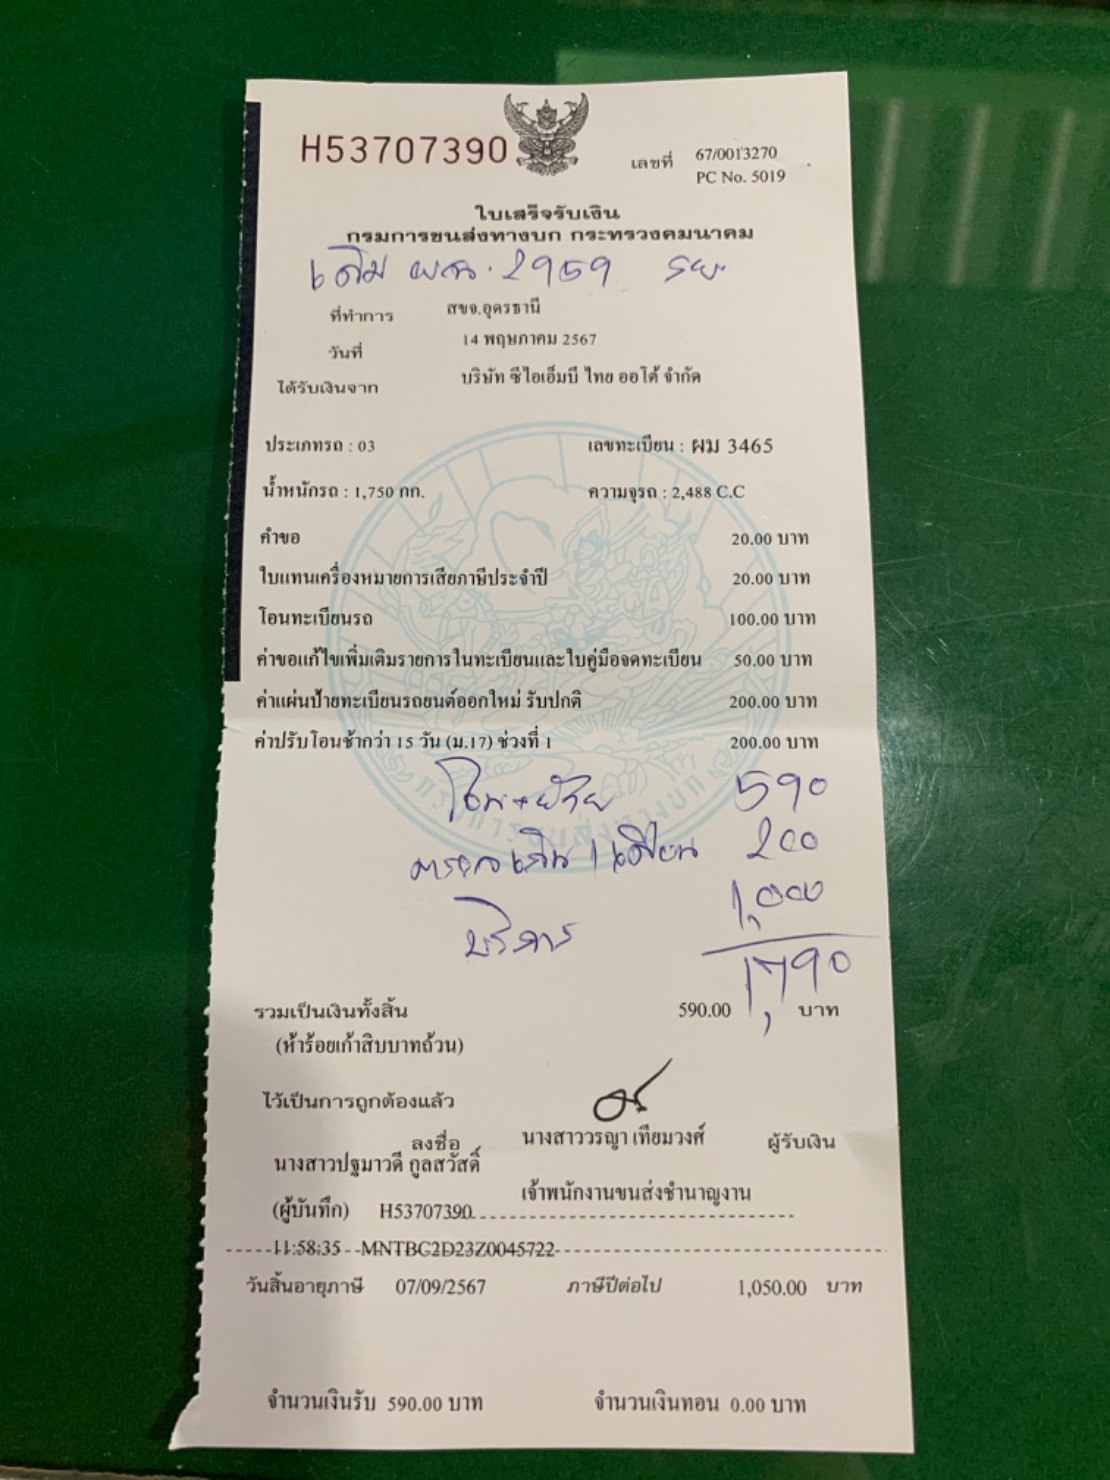 H53707390
เลขที่ 67/0013270
PC No. 5019
ใบเสร็จรับเงิน
กรมการขนส่งทางบก กระทรวงคมนาคม
เดิม ผก. 2959 รย.
ที่ทำการ สขจ.อุดรธานี
วันที่ 14 พฤษภาคม 2567
ได้รับเงินจาก บริษัท ซีไอเอ็มบี ไทย ออโต้ จำกัด
ประเภทรถ : 03 เลขทะเบียน : ผม 3465
น้ำหนักรถ : 1,750 กก. ความจุรถ : 2,488 C.C
คำขอ 20.00 บาท
ใบแทนเครื่องหมายการเสียภาษีประจำปี 20.00 บาท
โอนทะเบียนรถ 100.00 บาท
ค่าขอแก้ไขเพิ่มเติมรายการในทะเบียนและใบคู่มือจดทะเบียน 50.00 บาท
ค่าแผ่นป้ายทะเบียนรถยนต์ออกใหม่ รับปกติ 200.00 บาท
ค่าปรับโอนช้ากว่า 15 วัน (ม.17) ช่วงที่ 1 200.00 บาท
โอน+ย้าย 590
ตรวจเกิน 1 เดือน 200
บริการ 1,000
1,790
รวมเป็นเงินทั้งสิ้น 590.00 บาท
(ห้าร้อยเก้าสิบบาทถ้วน)
ไว้เป็นการถูกต้องแล้ว
ลงชื่อ นางสาววรญา เทียมวงศ์ ผู้รับเงิน
นางสาวปฐมาวดี กูลสวัสดิ์
เจ้าพนักงานขนส่งชำนาญงาน
(ผู้บันทึก) H53707390
11:58:35 MNTBC2D23Z0045722
วันสิ้นอายุภาษี 07/09/2567 ภาษีปีต่อไป 1,050.00 บาท
จำนวนเงินรับ 590.00 บาท จำนวนเงินทอน 0.00 บาท